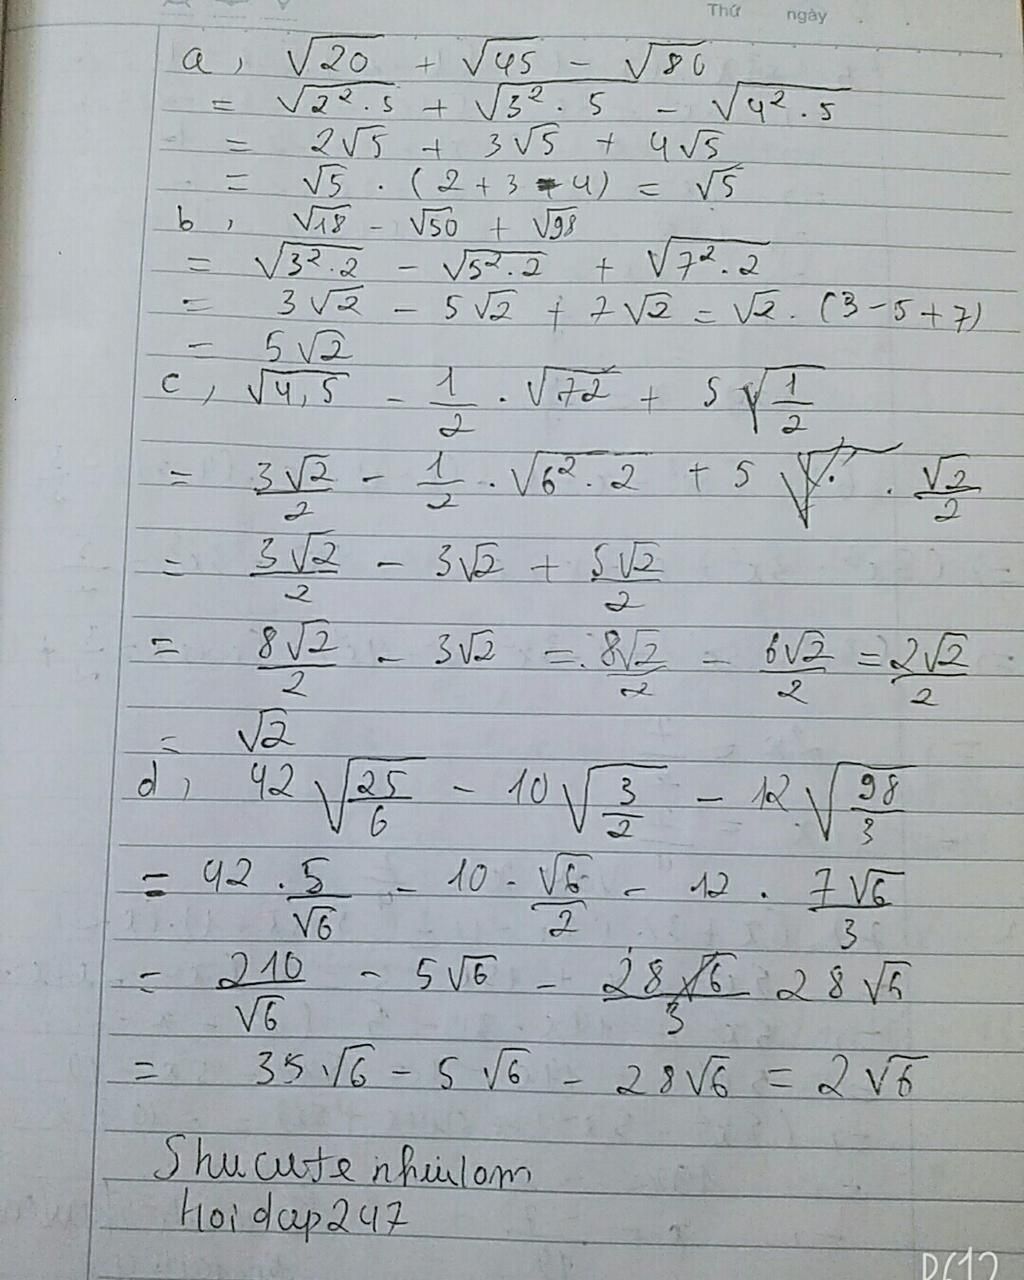 Thứ ngày
a, √20 + √45 - √80
= √2² . 5 + √3² . 5 - √4² . 5
= 2√5 + 3√5 + 4√5
= √5 . (2 + 3 - 4) = √5
b, √18 - √50 + √98
= √3² . 2 - √5² . 2 + √7² . 2
= 3√2 - 5√2 + 7√2 = √2 . (3 - 5 + 7)
= 5√2
c, √4,5 - 1/2 . √72 + 5√1/2
= 3√2/2 - 1/2 . √6² . 2 + 5 . √2/2
= 3√2/2 - 3√2 + 5√2/2
= 8√2/2 - 3√2 = 8√2/2 - 6√2/2 = 2√2/2
= √2
d, 42√25/6 - 10√3/2 - 12√98/3
= 42 . 5/√6 - 10 . √6/2 - 12 . 7√6/3
= 210/√6 - 5√6 - 28√6
= 35√6 - 5√6 - 28√6 = 2√6
Shucute
Hoidap247